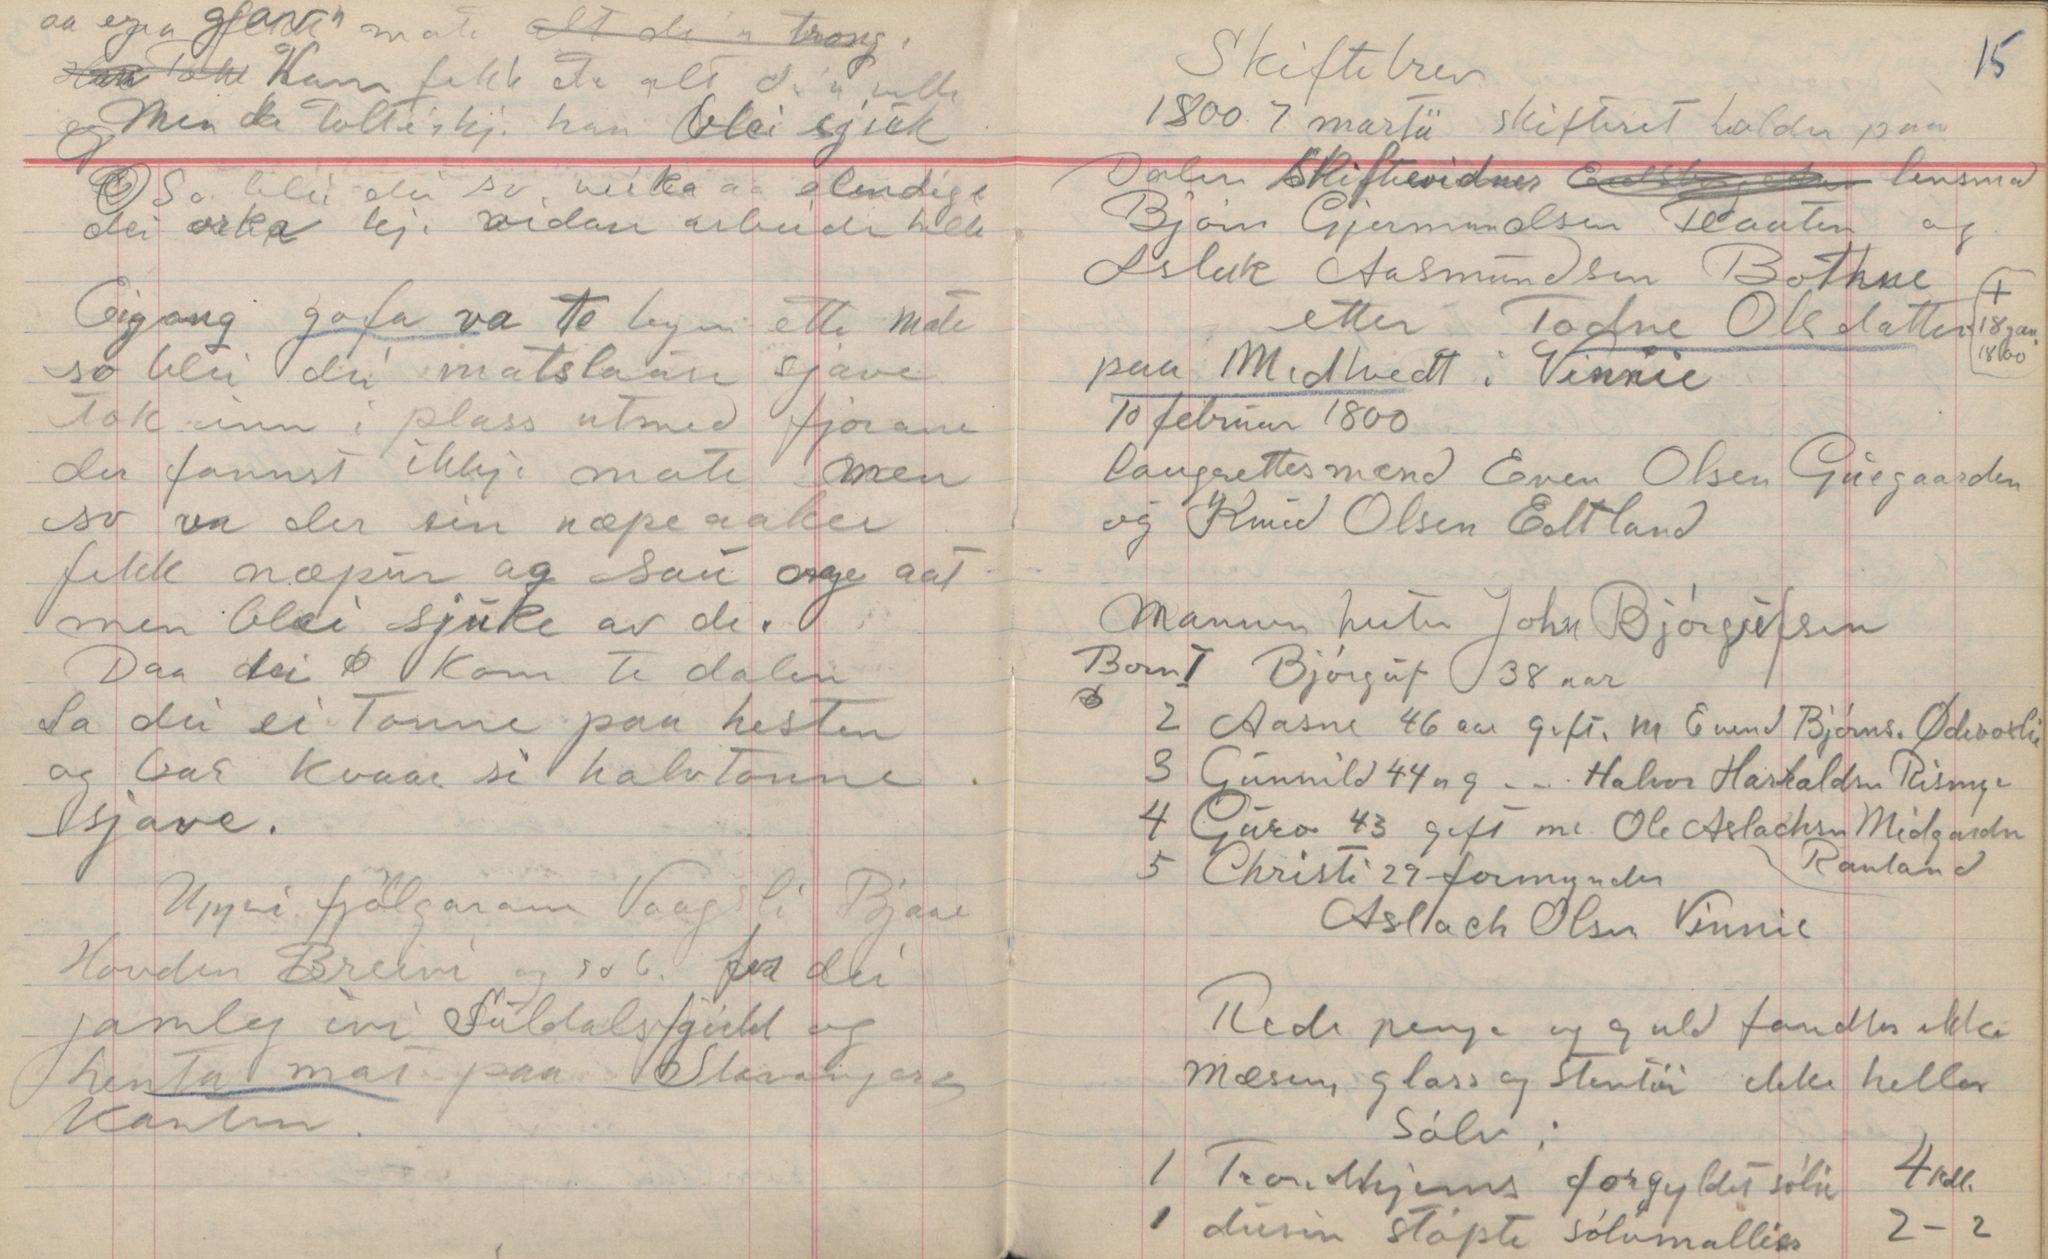 mate alt de 'n trong.
Han fekk eta alt de 'n vilde
Men de tolte 'kj. han blei sjuk
So blei dei so veika aa elendige
dei orka kj. vidare arbeide helle
Eigong gofa va te byen ette mate
so blei dei matslause sjave
tok inn i plass utmed fjorane
der fannst ikkje mate men
so va der ein næpeaaker
fekk næpur og sau og aat
men blei sjuke av de.
Daa dei kom te dalen
La dei ei tonne paa hesten
og bar kvaar si halvtonne
sjave.
Uppi fjølgarane Vaagsli Bjaae
Hovden Breivi og so b. for dei
jamleg ivi Suldalsfjeld og
henta mat paa Stavanger
kanten.
15
Skiftebrev
1800. 7 martii skifteret holden paa
Dalen Skiftevidner lensmd
Bjørn Gjermundsen Haaten og
Asluk Aasmundsen Bothne
etter Todne Olsdatter
+
18 jan.
1800
paa Midtvedt i Vinnie
10 februar 1800
laugrettesmænd Even Olsen Guegaarden
og Knud Olsen Edtland
Mannen heter John Bjørgufsen
Born 1 Bjørguf 38 aar
2 Aasne 46 aar gift. m Evend Bjørns. Ødevaslie
3 Gunnild 44 a g - - Halvor Harkaldsn Risnye
4 Guro 43 gift m. Ole Aslachsn Midgarden
Rauland
5 Christi 29 formynder
Aslach Olsen Vinnie
Rede penge og guld fandtes ikke
Mæsing, glass og stentøi ikke heller
Sølv:
1 Trondhjems forgyldet sølie 4 rdl.
1 dusin støpte sølvmallier 2 - 2